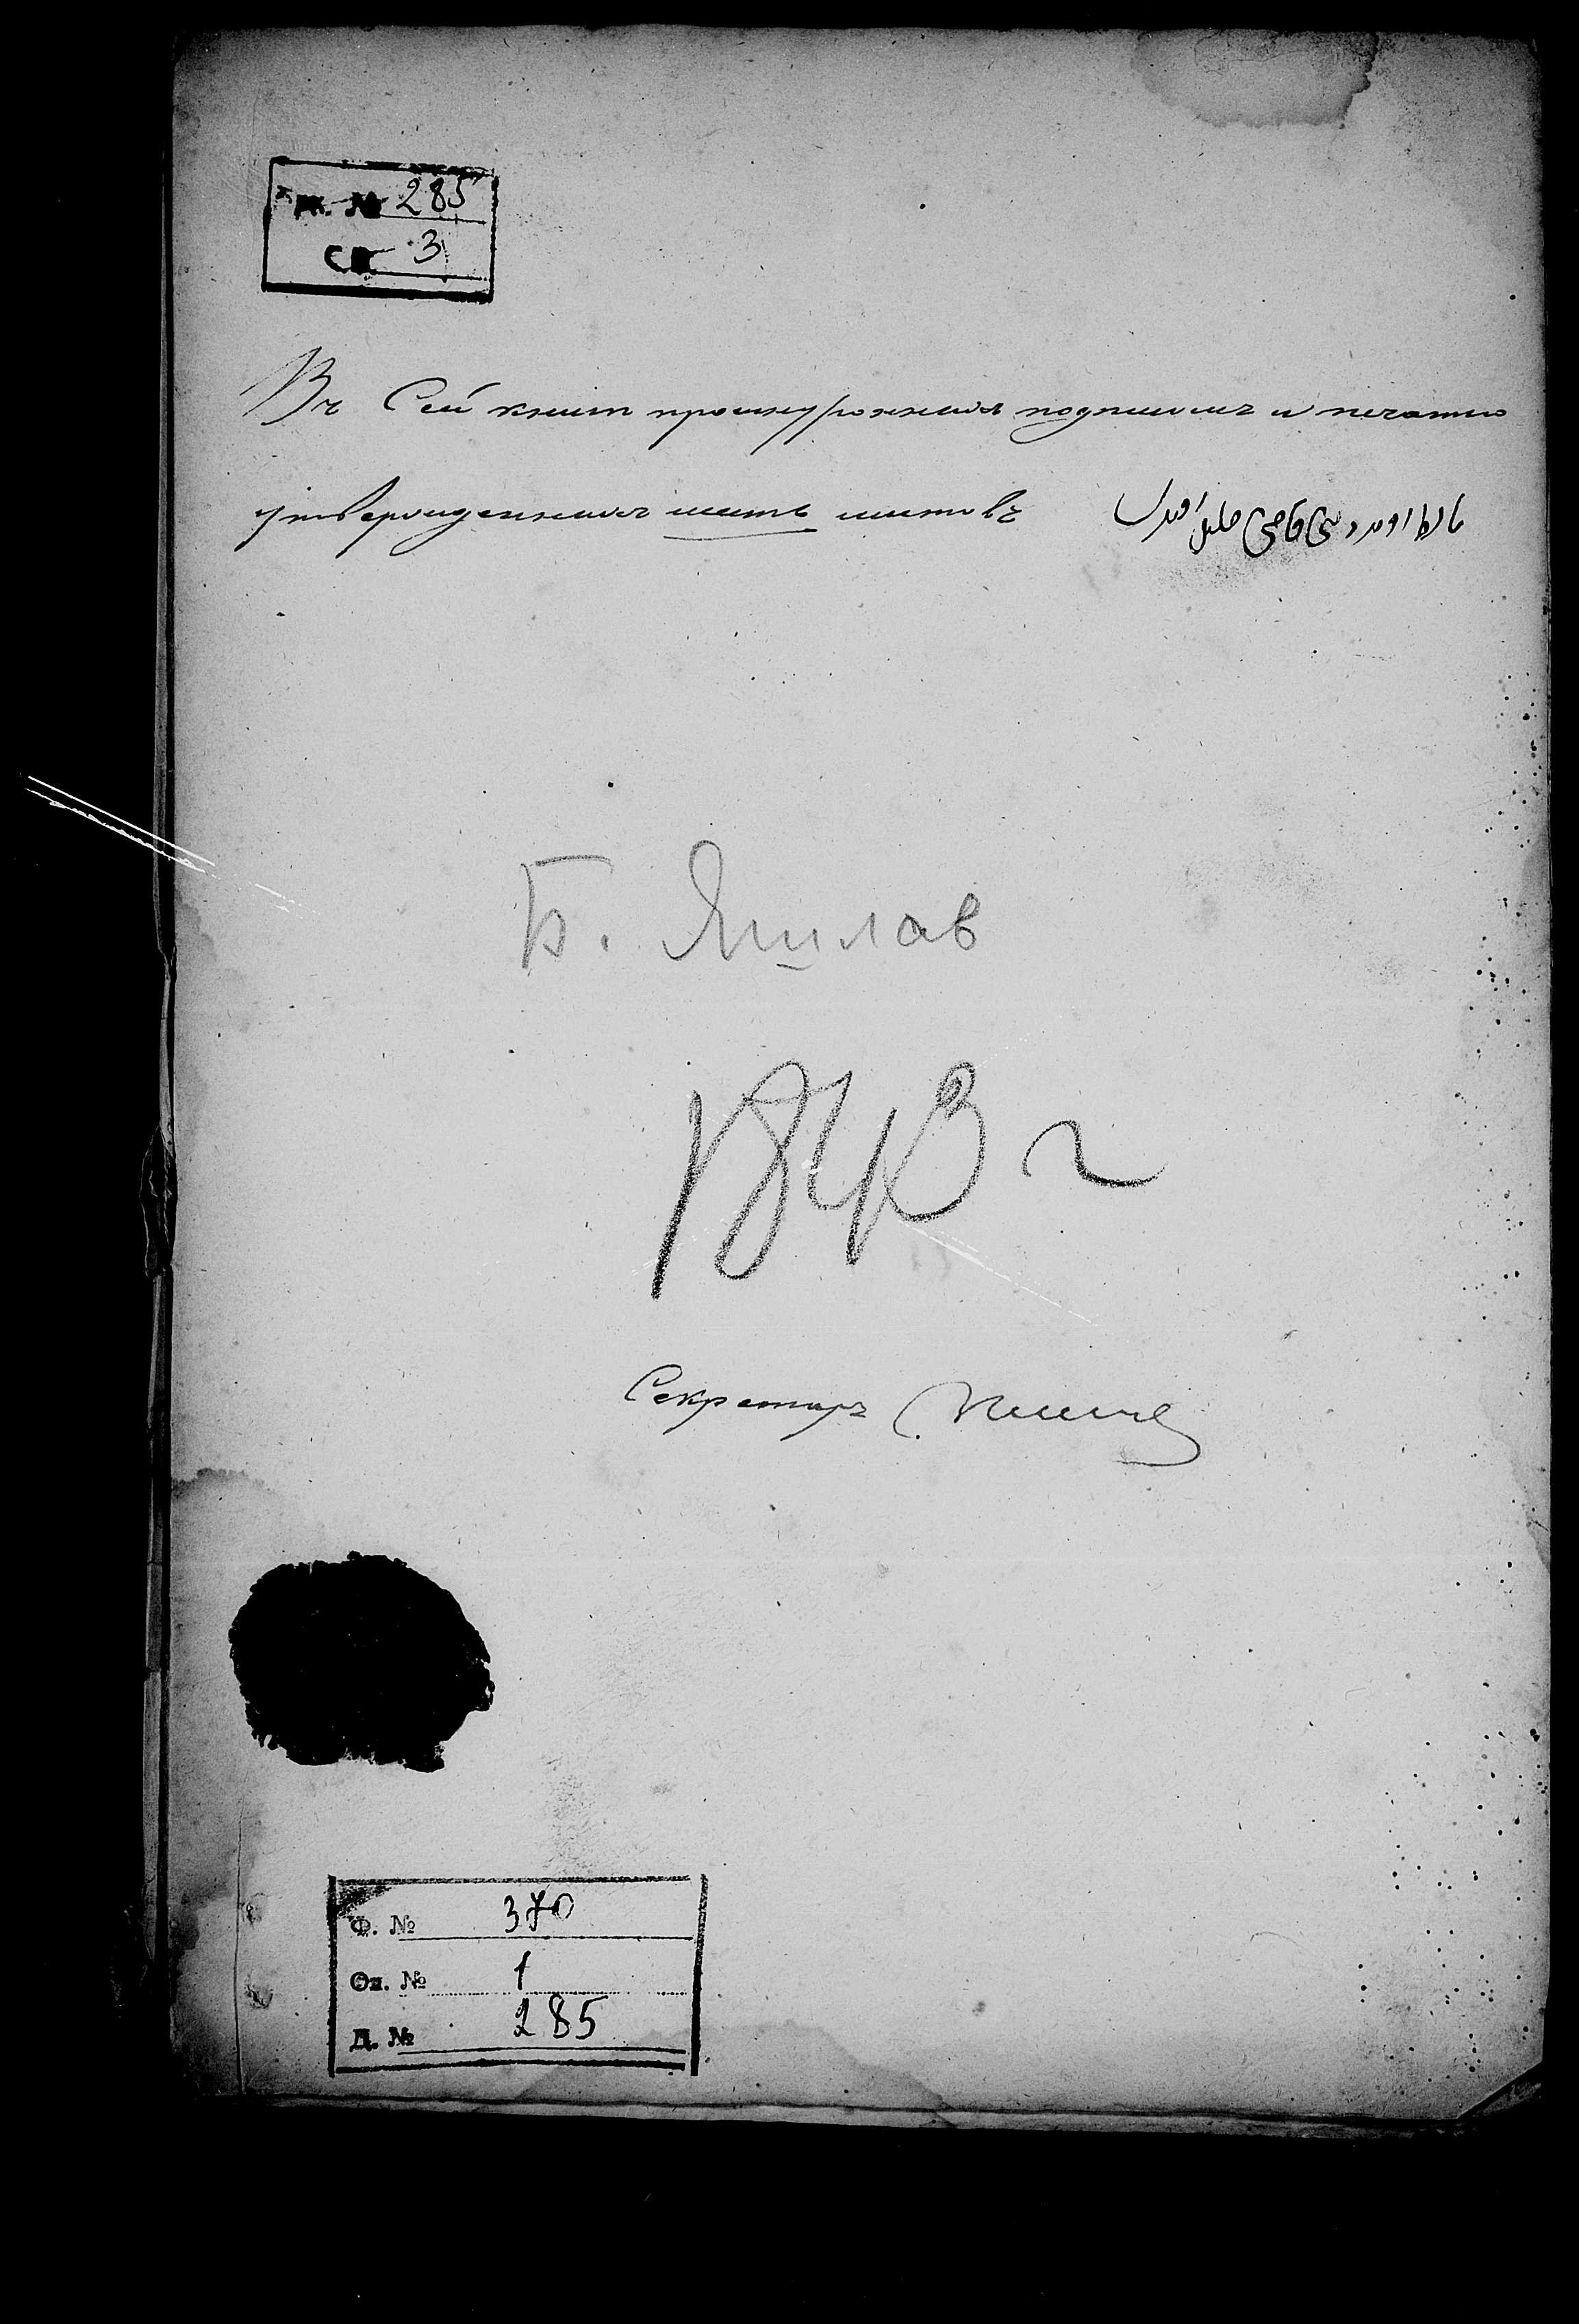 № 285
СВ 3
Въ Сей книгѣ прошнурованной подписомъ и печатью
утвержденной шесть листовъ
Б. Яшлав
1843 г
Секретарь
Ф. № 370
Оп. № 1
Д. № 285